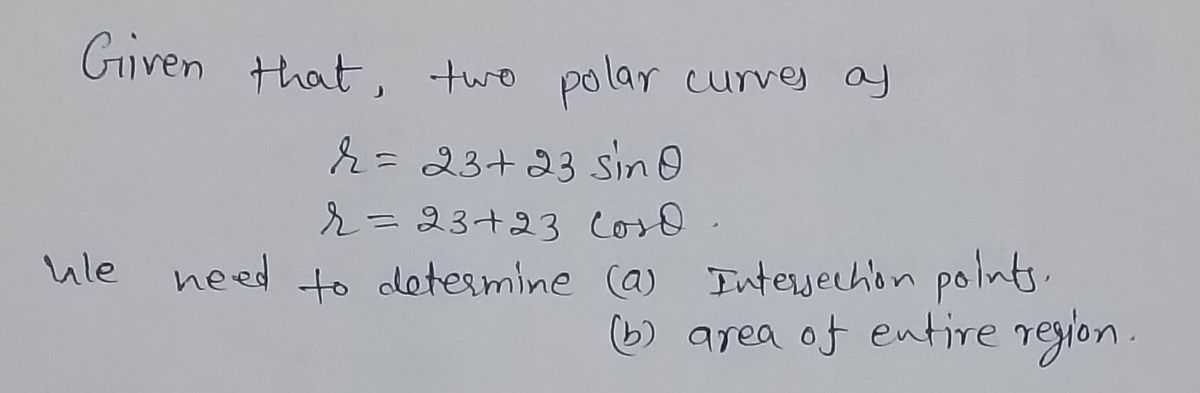 Given that, two polar curves as
r = 23 + 23 sin θ
r = 23 + 23 cos θ .
We need to determine (a) Intersection points.
(b) area of entire region.